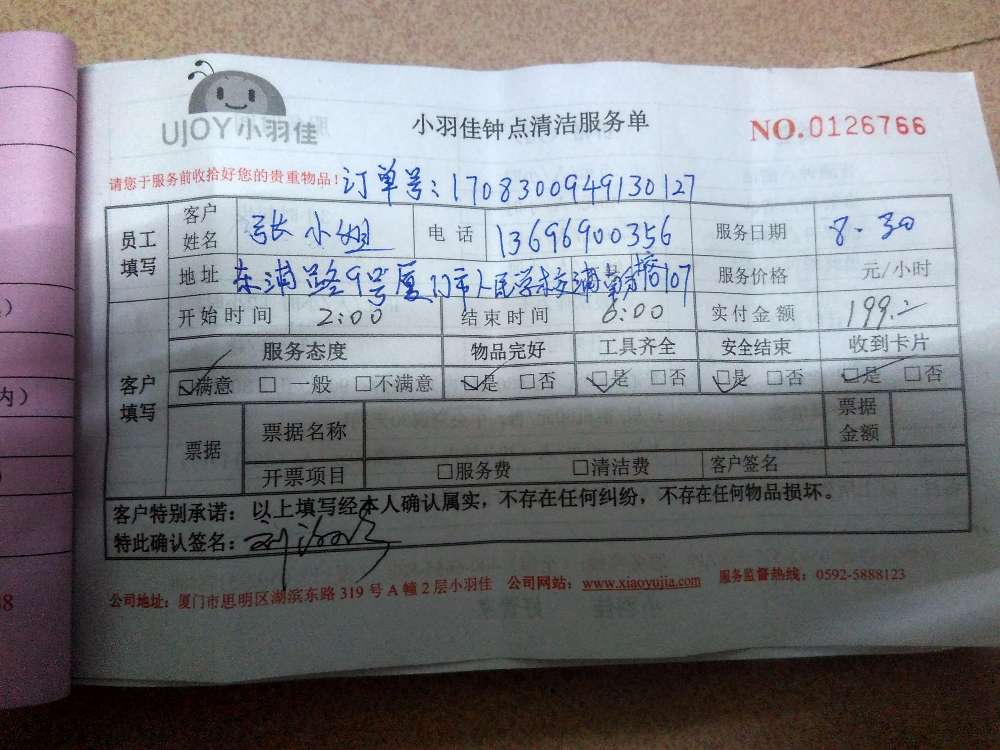 UJOY小羽佳
小羽佳钟点清洁服务单
NO.0126766
请您于服务前收拾好您的贵重物品!
订单号:1708300949130127
员工填写 客户姓名 张小姐 电话 13696900356 服务日期 8.30
地址 东浦路9号厦门市人民 107 服务价格 元/小时
开始时间 2:00 结束时间 6:00 实付金额 199.-
客户填写 服务态度 物品完好 工具齐全 安全结束 收到卡片
☑满意 □一般 □不满意 ☑是 □否 ☑是 □否 ☑是 □否 ☑是 □否
票据 票据名称 票据金额
开票项目 □服务费 □清洁费 客户签名
客户特别承诺:以上填写经本人确认属实,不存在任何纠纷,不存在任何物品损坏。
特此确认签名:
公司地址:厦门市思明区湖滨东路319号A幢2层小羽佳 公司网站:www.xiaoyujia.com 服务监督热线:0592-5888123
内)